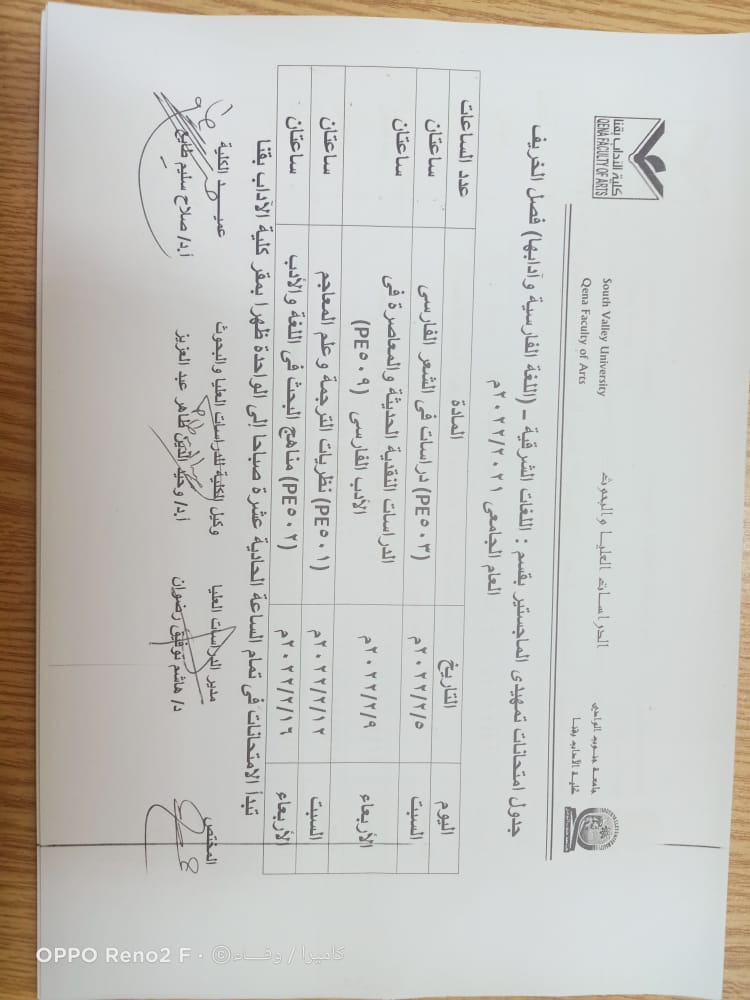 جامعة جنوب الوادي
كلية الآداب بقنا
الدراسات العليا والبحوث
South Valley University
Qena Faculty of Arts
كلية الآداب بقنا
QENA FACULTY OF ARTS
جدول امتحانات تمهيدى الماجستير بقسم : اللغات الشرقية – (اللغة الفارسية وآدابها) فصل الخريف
العام الجامعى ٢٠٢٢/٢٠٢١م
اليوم التاريخ المادة عدد الساعات
السبت ٢٠٢٢/٢/٥م (PE٥٠٣) دراسات فى الشعر الفارسى ساعتان
الأربعاء ٢٠٢٢/٢/٩م الدراسات النقدية الحديثة والمعاصرة فى ساعتان
الأدب الفارسى (PE٥٠٩)
السبت ٢٠٢٢/٢/١٢م (PE٥٠١) نظريات الترجمة وعلم المعاجم ساعتان
الأربعاء ٢٠٢٢/٢/١٦م (PE٥٠٢) مناهج البحث فى اللغة والأدب ساعتان
تبدأ الامتحانات فى تمام الساعة الحادية عشرة صباحا إلى الواحدة ظهرا بمقر كلية الآداب بقنا
المختص مدير الدراسات العليا وكيل الكلية للدراسات العليا والبحوث عميد الكلية
د/ هاشم توفيق رضوان أ.د/ وحيد الدين طاهر عبد العزيز أ.د/ صلاح سليم طايع
OPPO Reno2 F · ©كاميرا / وفاء